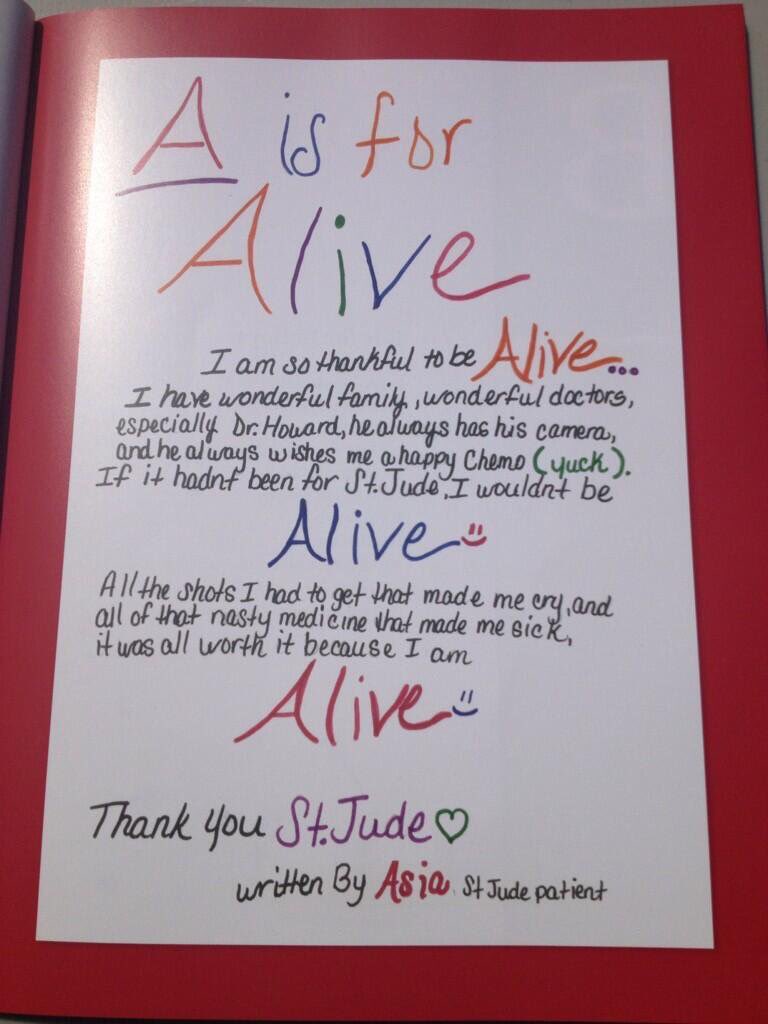 A is for
Alive
I am so thankful to be Alive...
I have wonderful family, wonderful doctors,
especially Dr. Howard, he always has his camera,
and he always wishes me a happy Chemo (yuck).
If it hadnt been for St. Jude, I wouldnt be
Alive
All the shots I had to get that made me cry, and
all of that nasty medicine that made me sick,
it was all worth it because I am
Alive
Thank you St. Jude
written By Asia St Jude patient